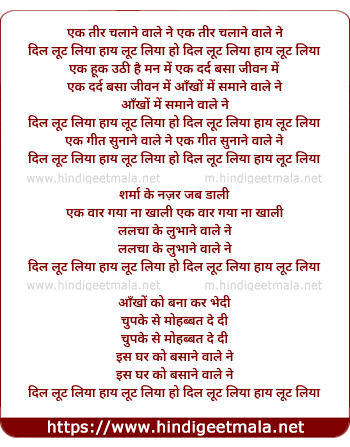 एक तीर चलाने वाले ने एक तीर चलाने वाले ने
दिल लूट लिया हाय लूट लिया हो दिल लूट लिया हाय लूट लिया
एक हूक उठी है मन में एक दर्द बसा जीवन में
एक दर्द बसा जीवन में आँखों में समाने वाले ने
आँखों में समाने वाले ने
दिल लूट लिया हाय लूट लिया हो दिल लूट लिया हाय लूट लिया
एक गीत सुनाने वाले ने एक गीत सुनाने वाले ने
दिल लूट लिया हाय लूट लिया हो दिल लूट लिया हाय लूट लिया
www.hindigeetmala.net m.hindigeetmala.net
शर्मा के नज़र जब डाली
एक वार गया ना खाली एक वार गया ना खाली
ललचा के लुभाने वाले ने
ललचा के लुभाने वाले ने
दिल लूट लिया हाय लूट लिया हो दिल लूट लिया हाय लूट लिया
www.hindigeetmala.net m.hindigeetmala.net
आँखों को बना कर भेदी
चुपके से मोहब्बत दे दी
चुपके से मोहब्बत दे दी
इस घर को बसाने वाले ने
इस घर को बसाने वाले ने
दिल लूट लिया हाय लूट लिया हो दिल लूट लिया हाय लूट लिया
https://www.hindigeetmala.net